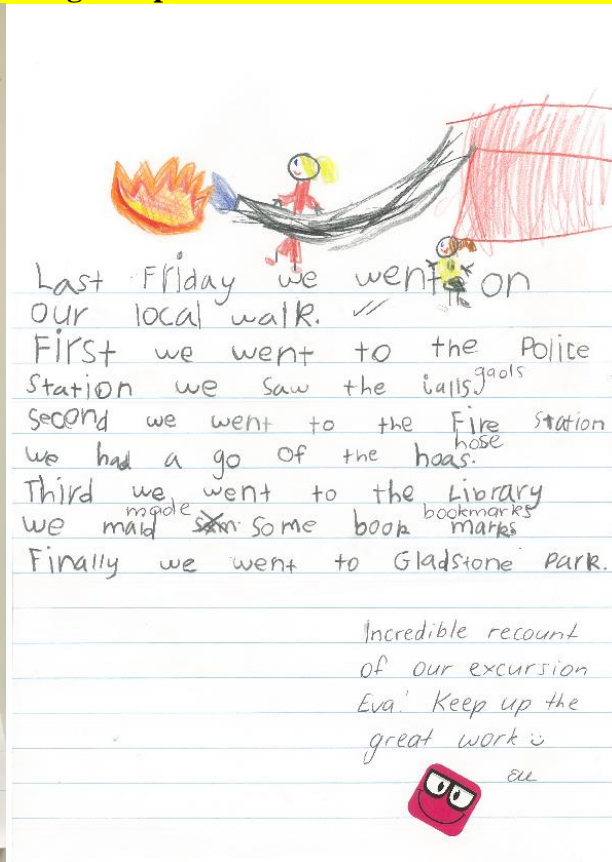 Last Friday we went on
our local walk.
First we went to the Police
Station we saw the
gaols
Second we went to the Fire Station
we had a go of the hoas.
hose
Third we went to the Library
made
bookmarks
we maid some book marks
Finally we went to Gladstone Park.
Incredible recount
of our excursion
Eva! Keep up the
great work